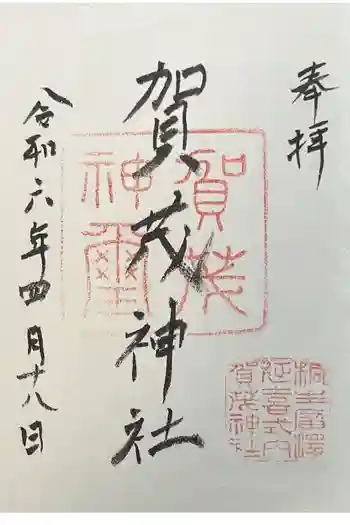 奉拝
賀茂神社
令和六年四月十八日
賀茂
神璽
桐生広澤
延喜式内
賀茂神社